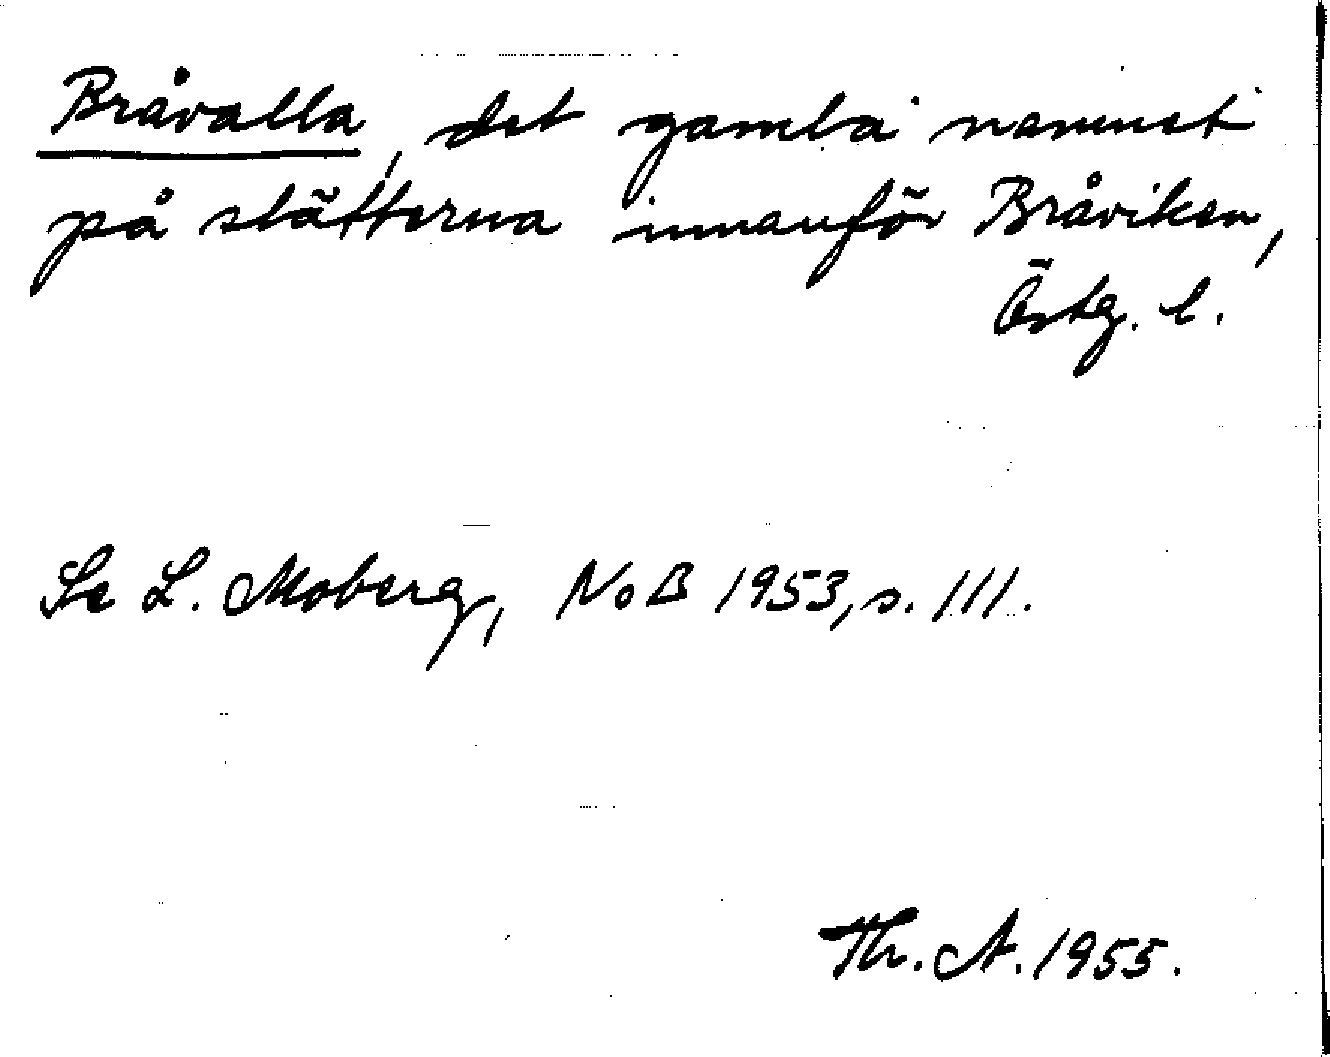 Bråvalla, det gamla namnet
på slätterna innanför Bråviken,
Östg. l.
Se L. Moberg, NoB 1953, s. 111.
Th. A. 1955.